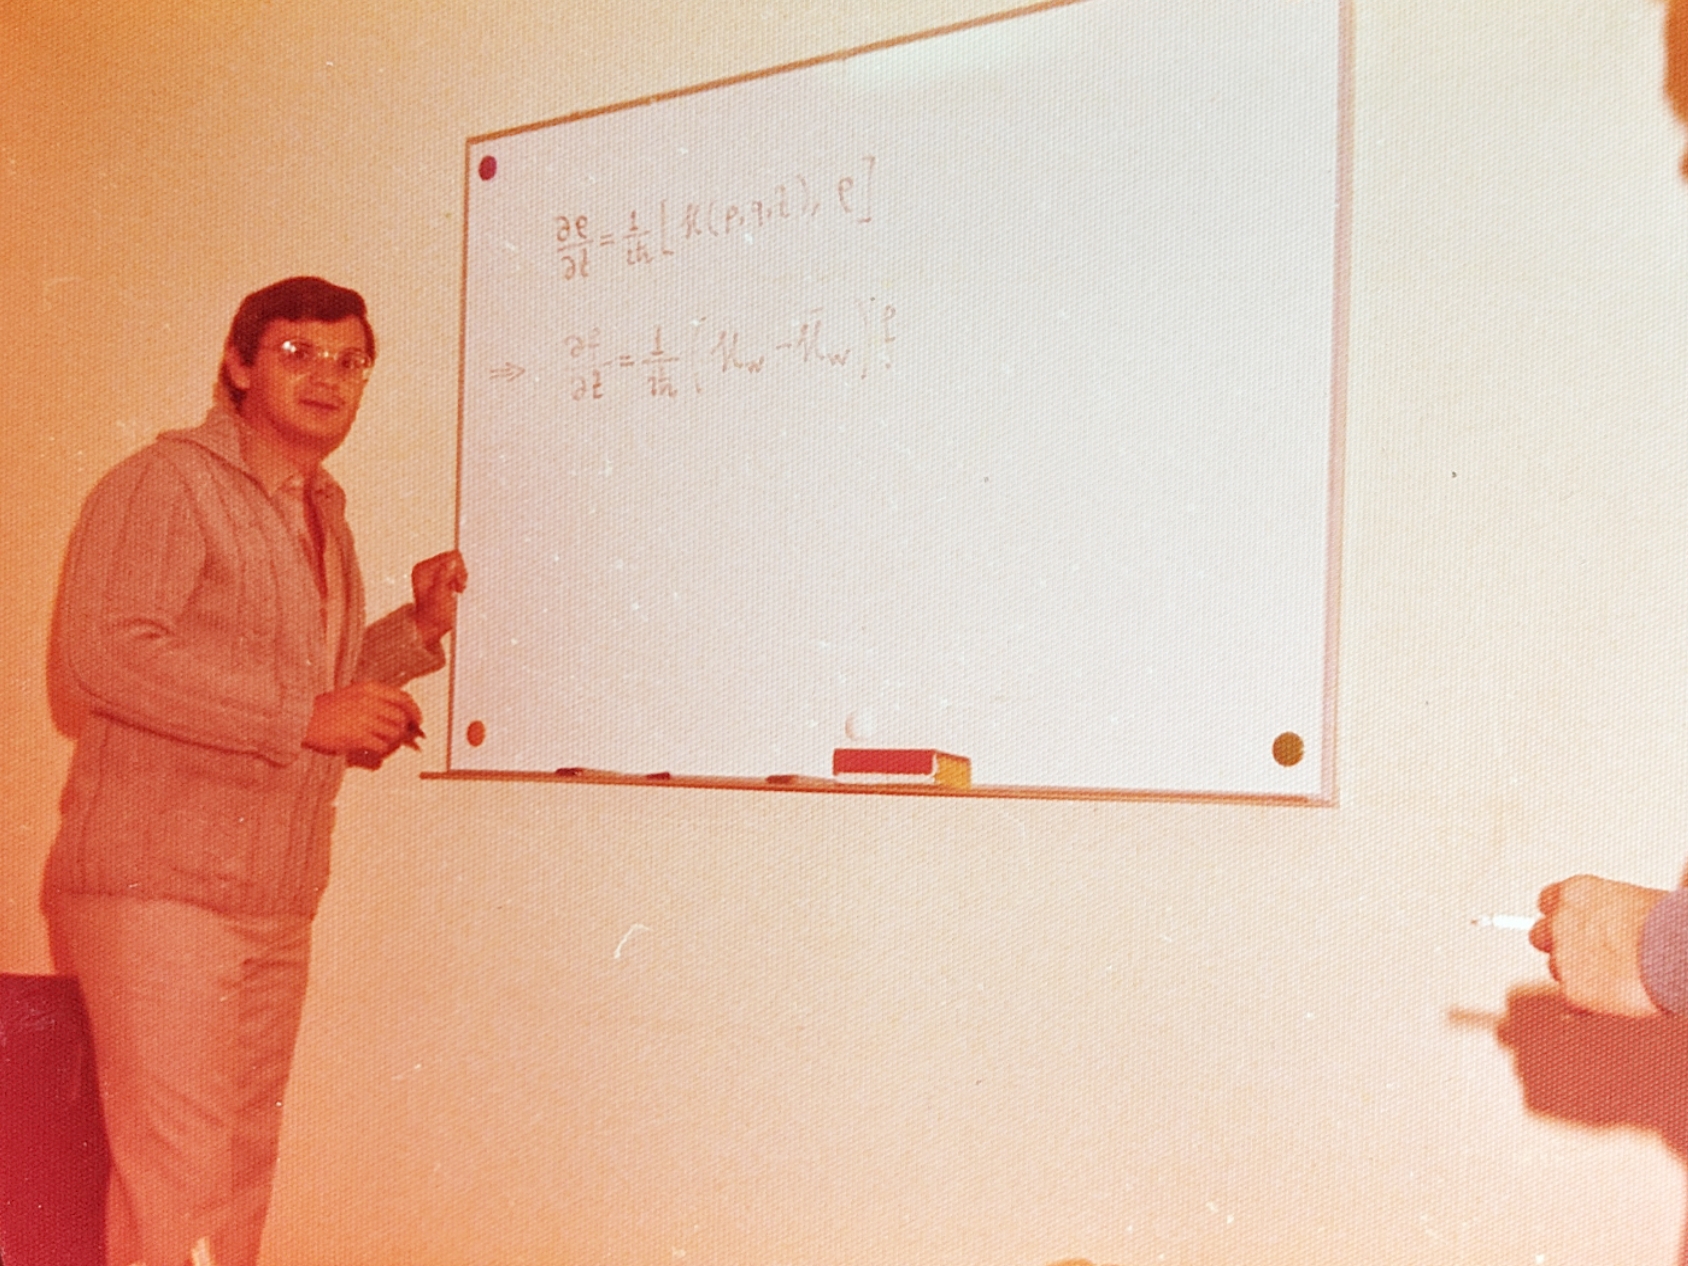 ∂ρ/∂t = 1/iħ [ℋ(p,q,t), ρ]
⇒ ∂f/∂t = 1/iħ (ℋ_w - ℋ̄_w) f